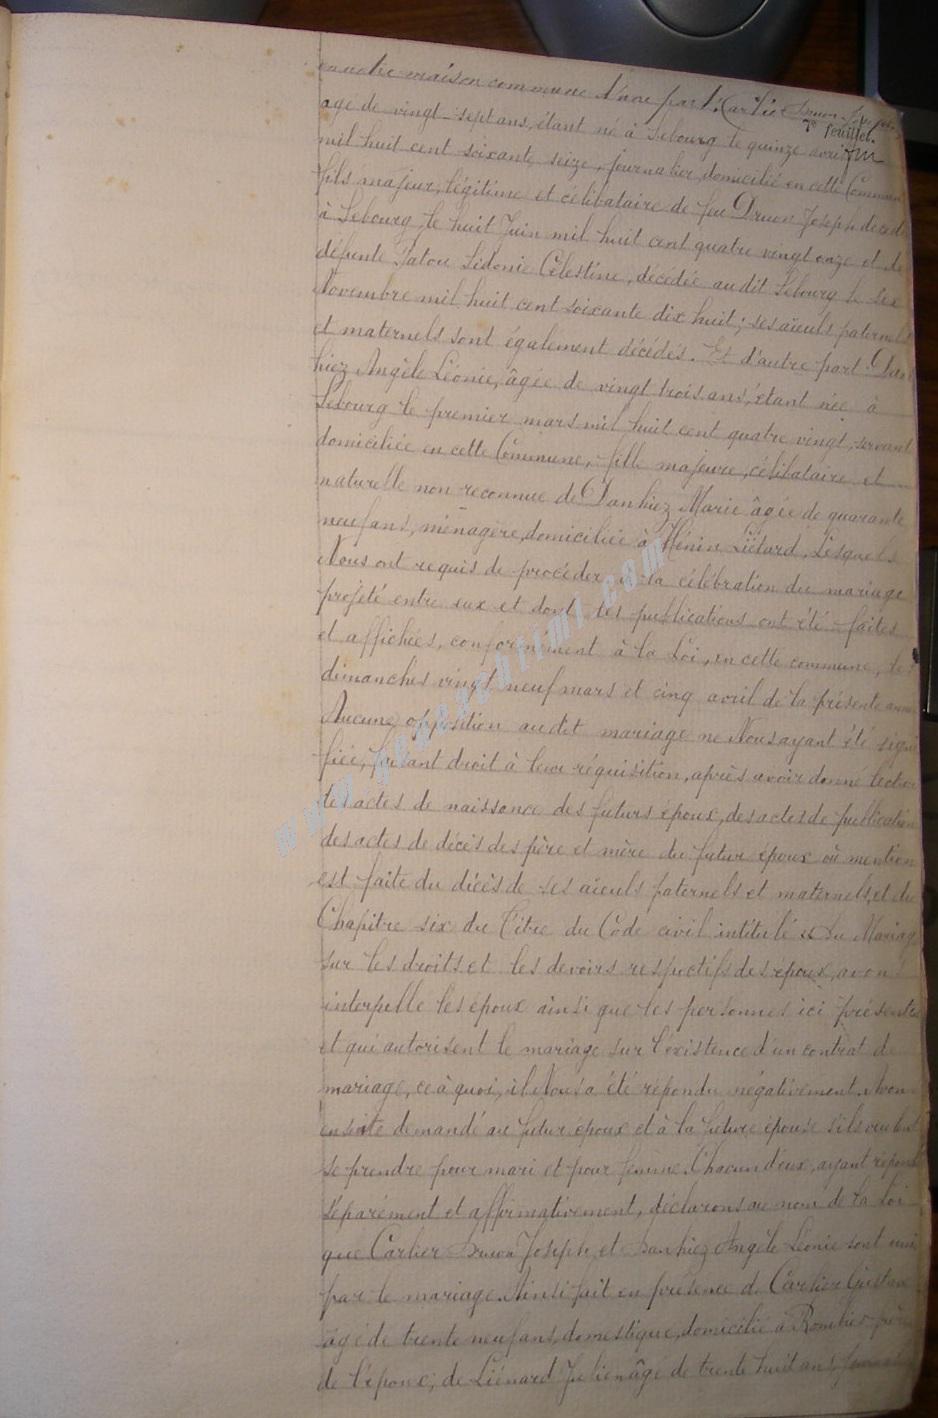 en notre maison commune d'une part. Carlier Druon Joseph
7e feuillet.
âgé de vingt-sept ans, étant né à Sebourg le quinze avril
mil huit cent soixante seize, journalier, domicilié en cette Commune
fils majeur, légitime et célibataire de feu Druon Joseph décédé
à Sebourg le huit Juin mil huit cent quatre vingt onze et de
défunte Patou Sidonie Célestine, décédée audit Sebourg le six
Novembre mil huit cent soixante dix huit; ses aïeuls paternels
et maternels sont également décédés. Et d'autre part Dan
hiez Angèle Léonie, âgée de vingt trois ans, étant née à
Sebourg le premier mars mil huit cent quatre vingt, servante
domiciliée en cette Commune, fille majeure, célibataire et
naturelle non reconnue de Danhiez Marie âgée de quarante
neuf ans, ménagère, domiciliée à Hénin Liétard, Lesquels
Nous ont requis de procéder à la célébration du mariage
projeté entre eux et dont les publications ont été faites
et affichées, conformément à la Loi, en cette commune, les
dimanches vingt neuf mars et cinq avril de la présente année
Aucune opposition audit mariage ne Nous ayant été signi
fiée, faisant droit à leur réquisition, après avoir donné lecture
des actes de naissance des futurs époux, des actes de publication
des actes de décès des père et mère du futur époux où mention
est faite du décès de ses aïeuls paternels et maternels, et du
Chapitre six du Titre du Code civil intitulé « Du Mariage
sur les droits et les devoirs respectifs des époux, avons
interpellé les époux ainsi que les personnes ici présentes
et qui autorisent le mariage sur l'existence d'un contrat de
mariage, ce à quoi, il Nous a été répondu négativement. Avons
ensuite demandé au futur époux et à la future épouse s'ils veulent
se prendre pour mari et pour femme. Chacun d'eux, ayant répondu
séparément et affirmativement, déclarons au nom de la Loi
que Carlier Druon Joseph et Danhiez Angèle Léonie sont unis
par le mariage. Ainsi fait en présence de Carlier Gustave
âgé de trente neuf ans, domestique, domicilié à Rombies frère
de l'époux; de Liénard Julien âgé de trente huit ans,
www.genechtimi.com